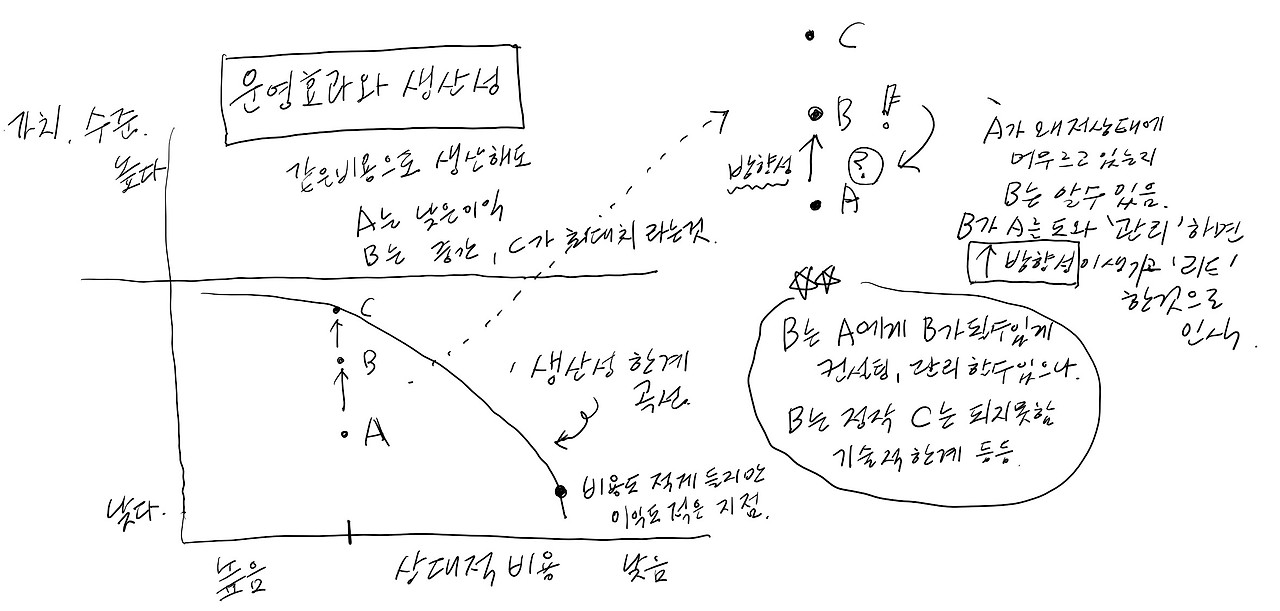 운영효과와 생산성
가치, 수준.
높다
같은비용으로 생산해도
A는 낮은이익
B는 중간, C가 최대치 라는것.
C
B
A
생산성 한계
곡선.
비용도 적게 들지만
이익도 적은 지점.
낮다.
높음
상대적 비용
낮음
C
B !
방향성
?
A
A가 왜 저상태에
머무르고 있는지
B는 알수 있음.
B가 A를 도와 '관리'하면
↑ 방향성이생기고 '리드'
한것으로
인식.
☆☆
B는 A에게 B가될수있게
컨설팅, 관리 할수있으나.
B는 정작 C는 되지못함
기술적한계 등등.